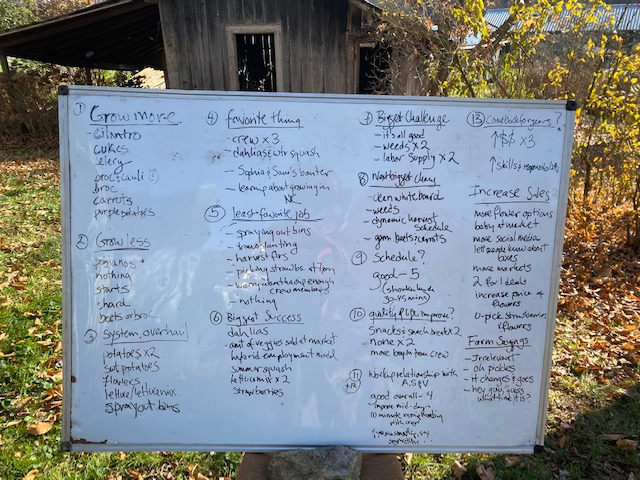 ① Grow more
- cilantro
cukes
celery
broc
carrots
purple potatoes
② Grow less
nothing
starts
chard
beets or broc
③ System overhaul
potatoes x2
swt potatoes
flowers
lettuce/lettuce mix
spray out bins
④ favorite thing
- crew x3
- dahlias & wtr squash
- Sophia & Sam's banter
- learning about growing in
NC
⑤ least favorite job
- spraying out bins
- transplanting
- harvest
- picking strawbs
- nothing
⑥ Biggest Success
dahlias
- amt of veggies sold at market
hybrid employment model
summer squash
lettuce mix x2
strawberries
⑦ Biggest Challenge
- it's all good
- weeds x2
- labor supply x2
⑧
- clean white board
- weeds
- dynamic harvest
schedule
- beets & carrots
⑨ Schedule?
good - 5
30-45 mins)
⑩ quality of life improve?
snacks & snack break x2
none x2
more bag in tom crew
⑪
relationship with
good overall - 4
10 minute
⑬ Come back for years?
↑$$ x3
↑skills &
Increase Sales
more flower options
baby at market
more social media
let people know about
boxes
more markets
2 for 1 deals
increase price of
flowers
u-pick strawberries
& flowers
Farm Sayings
- Irrelevant
- oh pickles
- it changes & goes
- hey you guys
what time it is?